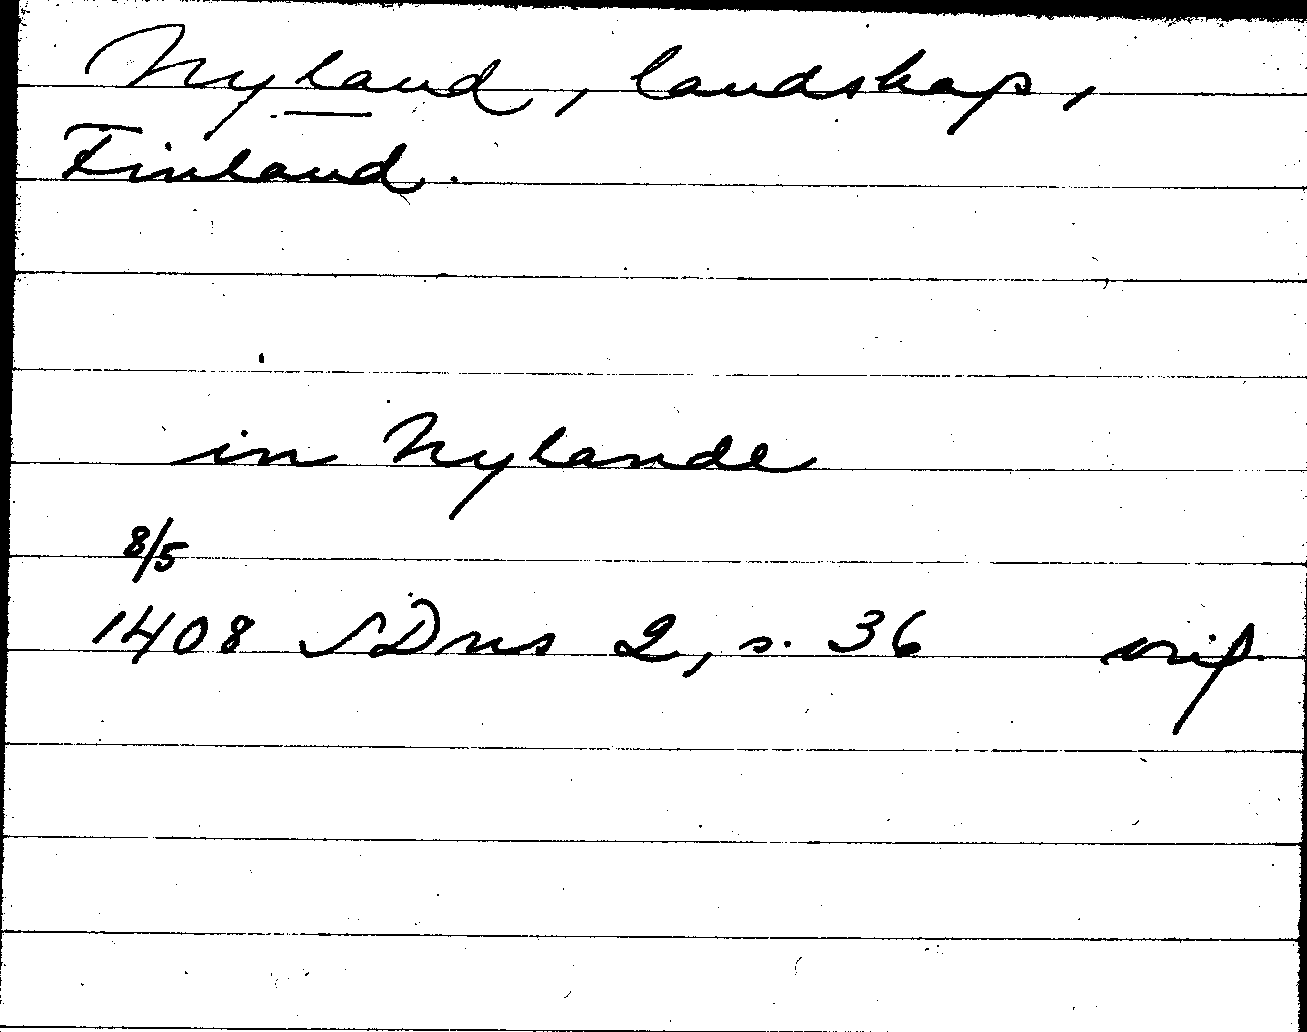 Nyland, landskap,
Finland.
in Nylande
8/5
1408 SDns 2, s. 36 orig.